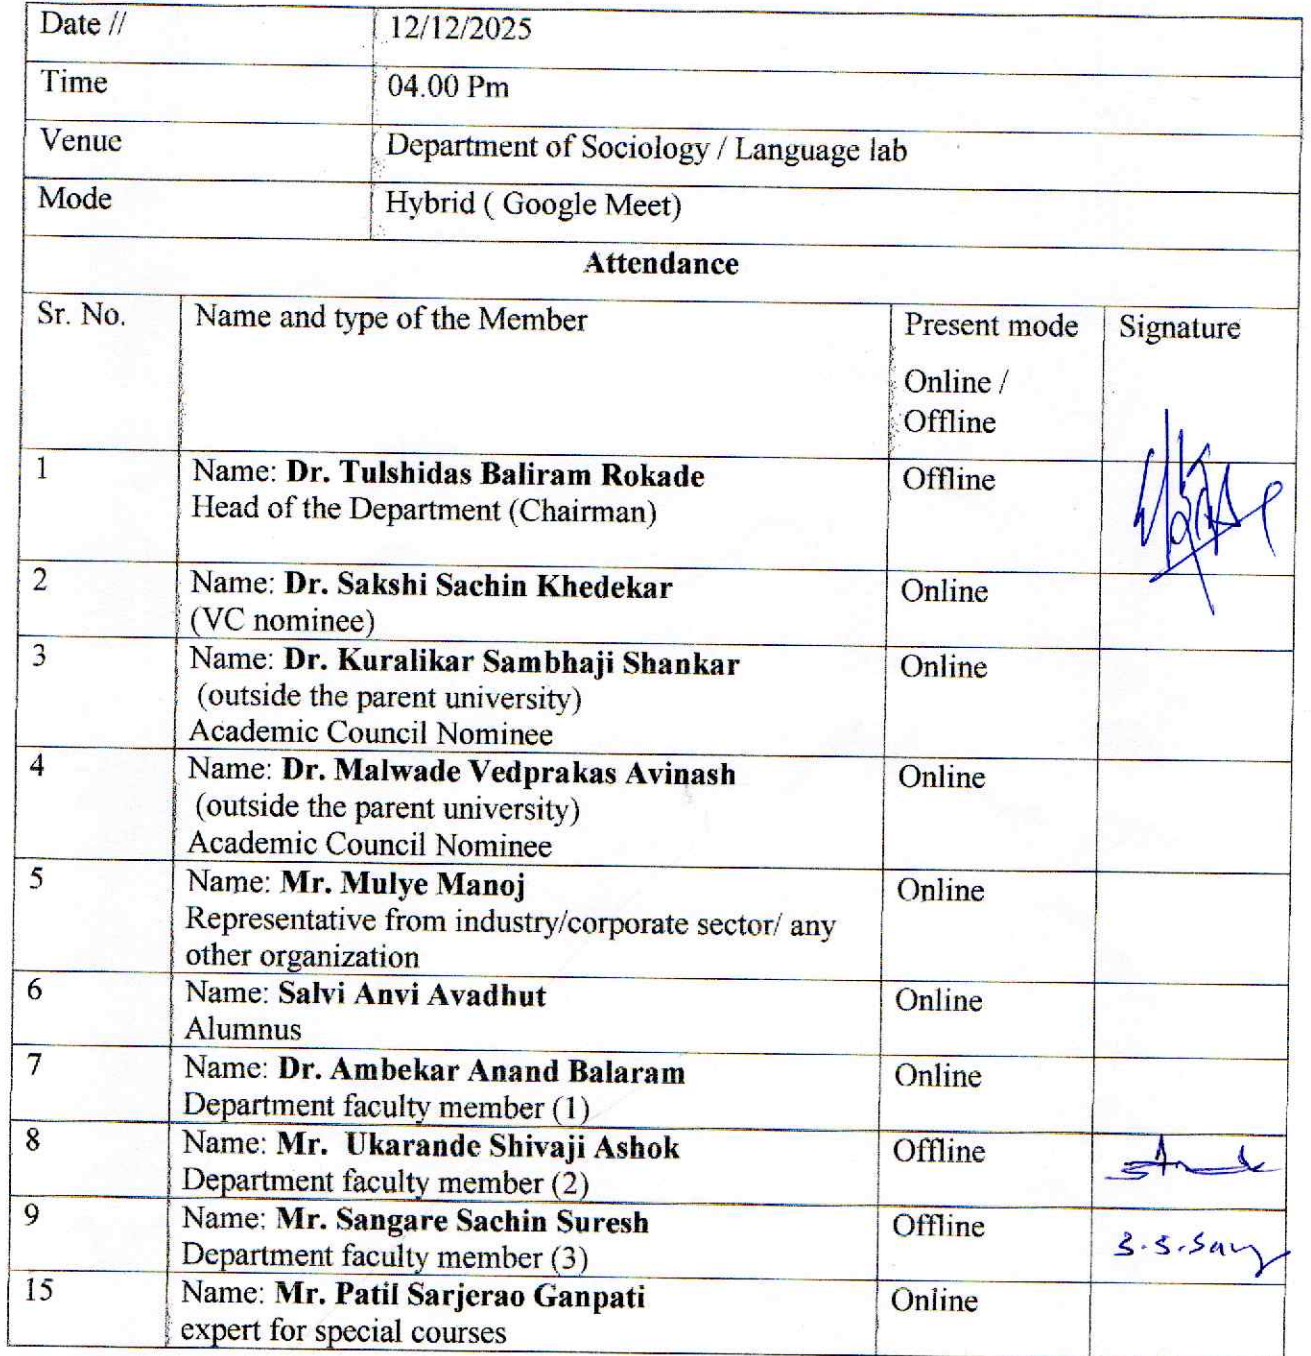 Date // 12/12/2025
Time 04.00 Pm
Venue Department of Sociology / Language lab
Mode Hybrid ( Google Meet)
Attendance
Sr. No. Name and type of the Member Present mode Signature
Online /
Offline
1 Name: Dr. Tulshidas Baliram Rokade Offline
Head of the Department (Chairman)
2 Name: Dr. Sakshi Sachin Khedekar Online
(VC nominee)
3 Name: Dr. Kuralikar Sambhaji Shankar Online
(outside the parent university)
Academic Council Nominee
4 Name: Dr. Malwade Vedprakas Avinash Online
(outside the parent university)
Academic Council Nominee
5 Name: Mr. Mulye Manoj Online
Representative from industry/corporate sector/ any
other organization
6 Name: Salvi Anvi Avadhut Online
Alumnus
7 Name: Dr. Ambekar Anand Balaram Online
Department faculty member (1)
8 Name: Mr. Ukarande Shivaji Ashok Offline
Department faculty member (2)
9 Name: Mr. Sangare Sachin Suresh Offline
Department faculty member (3)
15 Name: Mr. Patil Sarjerao Ganpati Online
expert for special courses